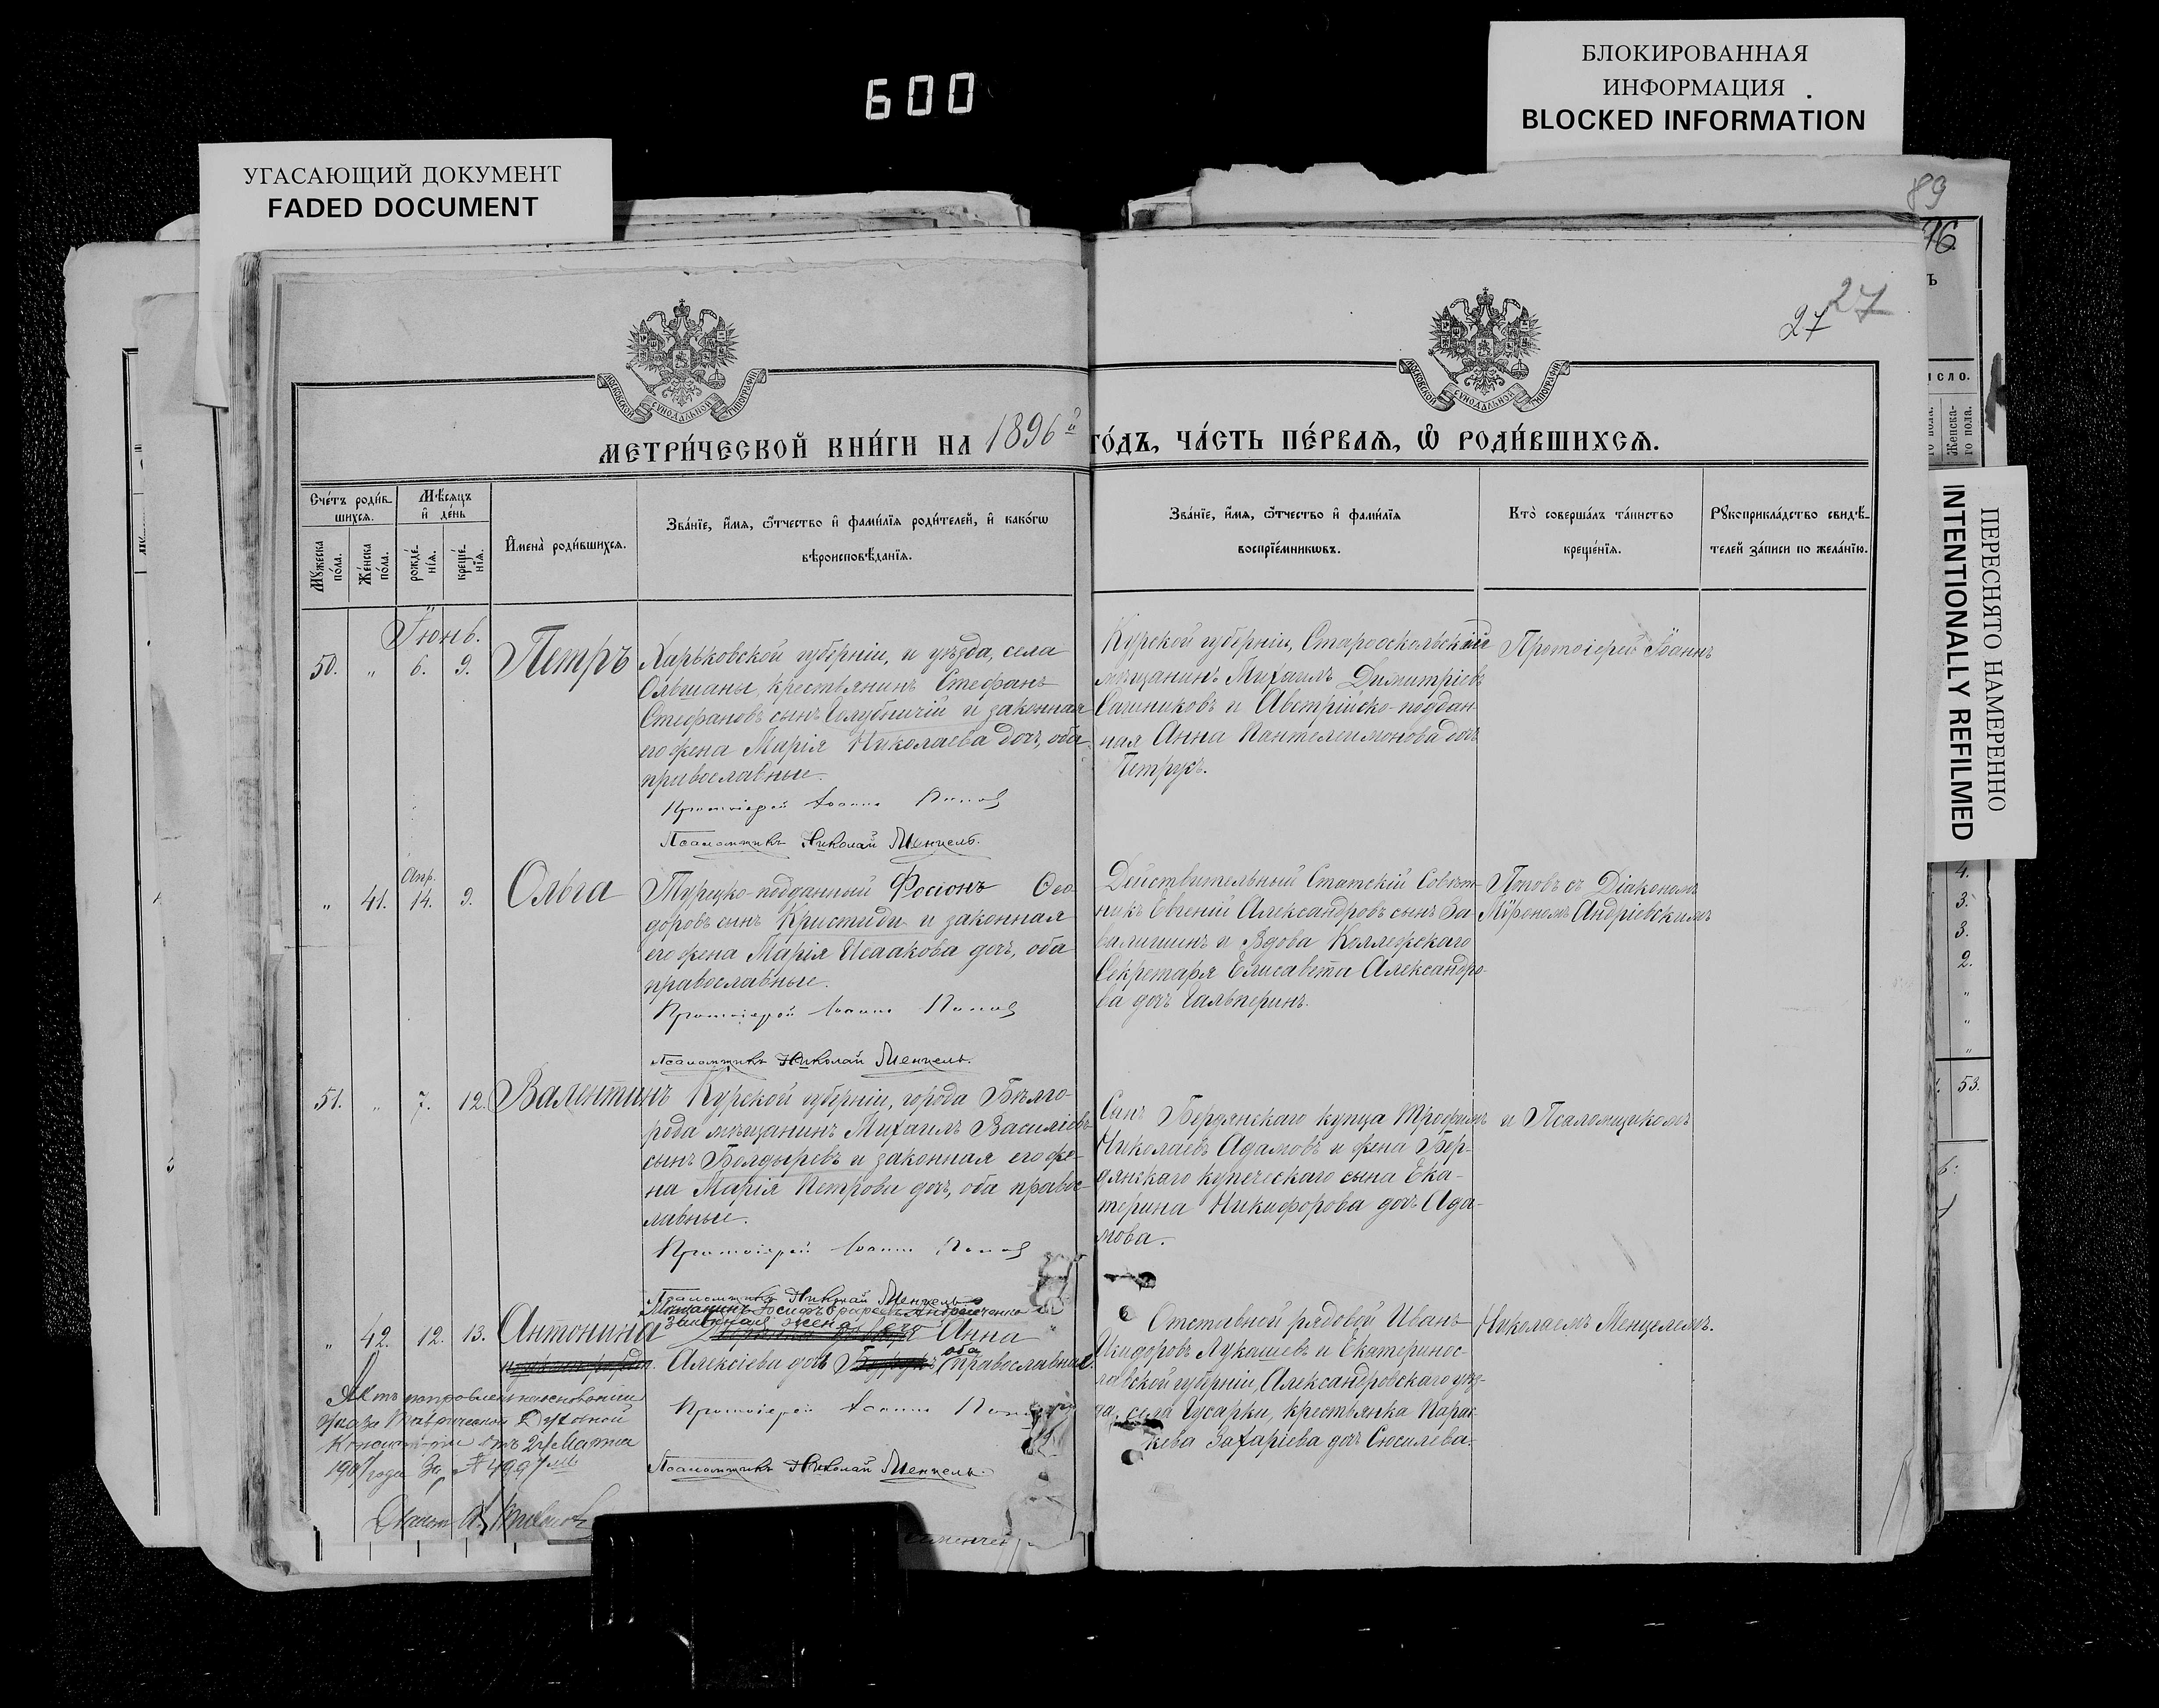 600
БЛОКИРОВАННАЯ
ИНФОРМАЦИЯ
BLOCKED INFORMATION
УГАСАЮЩИЙ ДОКУМЕНТ
FADED DOCUMENT
89
76
27
27
МЕТРИ́ЧЕСКОЙ КНИ́ГИ НА 1896й ГО́ДЪ, ЧА́СТЬ ПЕ́РВАЯ, Ѡ҆ РОДИ́ВШИХСЯ.
МОСКОВСКОЙ СѴНОДАЛЬНОЙ ТИПОГРАФІИ
МОСКОВСКОЙ СѴНОДАЛЬНОЙ ТИПОГРАФІИ
Сче́тъ роди́вшихся.
Мꙋ́жеска по́ла.
Же́нска по́ла.
Мѣ́сяцъ и҆ де́нь
рожде́нїя.
креще́нїя.
И҆мена̀ роди́вшихся.
Зва́нїе, и҆́мя, ѻ҆́тчество и҆ фами́лїя роди́телей, и҆ како́гѡ
вѣроисповѣ́данїя.
Зва́нїе, и҆́мя, ѻ҆́тчество и҆ фами́лїя
воспрїе́мникѡвъ.
Кто̀ соверша́лъ та́инство
креще́нїя.
Рꙋкоприкла́дство свидѣ́-
телей за́писи по жела́нїю.
Іюнь.
50. " 6. 9. Петръ
Харьковской губерніи, и уѣзда, села
Ольшаны, крестьянинъ Стефанъ
Стефановъ сынъ Голубничій и законная
его жена Марія Николаева дочь, оба
православные.
Протоіерей Іоаннъ Поповъ
Псаломщикъ Николай Менцель.
Курской губерніи, Старооскольскій
мѣщанинъ Михаилъ Димитріевъ
Сашниковъ и Австрійско-поддан-
ная Анна Пантелеимонова дочь
Петрусъ.
Протоіерей Іоаннъ
Апр.
" 41. 14. 9. Ольга
Турецко-подданный Фосіонъ Ѳео-
доровъ сынъ Кристиди и законная
его жена Марія Исаакова дочь, оба
православные.
Протоіерей Іоаннъ Поповъ
Псаломщикъ Николай Менцель.
Действительный Статскій Совѣт-
никъ Евгеній Александровъ сынъ За-
валишинъ и Вдова Коллежскаго
Секретаря Елисавета Александро-
ва дочь Гальперинъ.
Поповъ съ Діакономъ
Мѵрономъ Андріевскимъ
51. " 7. 12. Валентинъ
Курской губерніи, города Бѣлго-
рода мѣщанинъ Михаилъ Василіевъ
сынъ Болдыревъ и законная его же-
на Марія Петрова дочь, оба правос-
лавные.
Протоіерей Іоаннъ Поповъ
Псаломщикъ Николай Менцель
Сынъ Бердянскаго купца Трофимъ
Николаевъ Адамовъ и жена Бер-
дянскаго купеческаго сына Ека-
терина Никифорова дочь Ада-
мова.
и Псаломщикомъ
" 42. 12. 13. Антонина
Мѣщанинъ Іосифъ
законная жена его Анна
Алексіева дочь оба православные.
Протоіерей Іоаннъ Поповъ
Псаломщикъ Николай Менцель.
Отставной рядовой Иванъ
Исидоровъ Лукашевъ и Екатеринос-
лавской губерніи, Александровскаго уѣз-
да, села Гусарки, крестьянка Парас-
кева Захаріева дочь Сюсилева.
Николаемъ Менцелемъ.
Актъ исправленъ на основаніи
указа Таврической Духовной
Консисторіи отъ 24 Марта
190 года за №
ПЕРЕСНЯТО НАМЕРЕННО
INTENTIONALLY REFILMED
исло.
Женска-
го пола.
4.
3.
3.
2.
"
"
"
53.